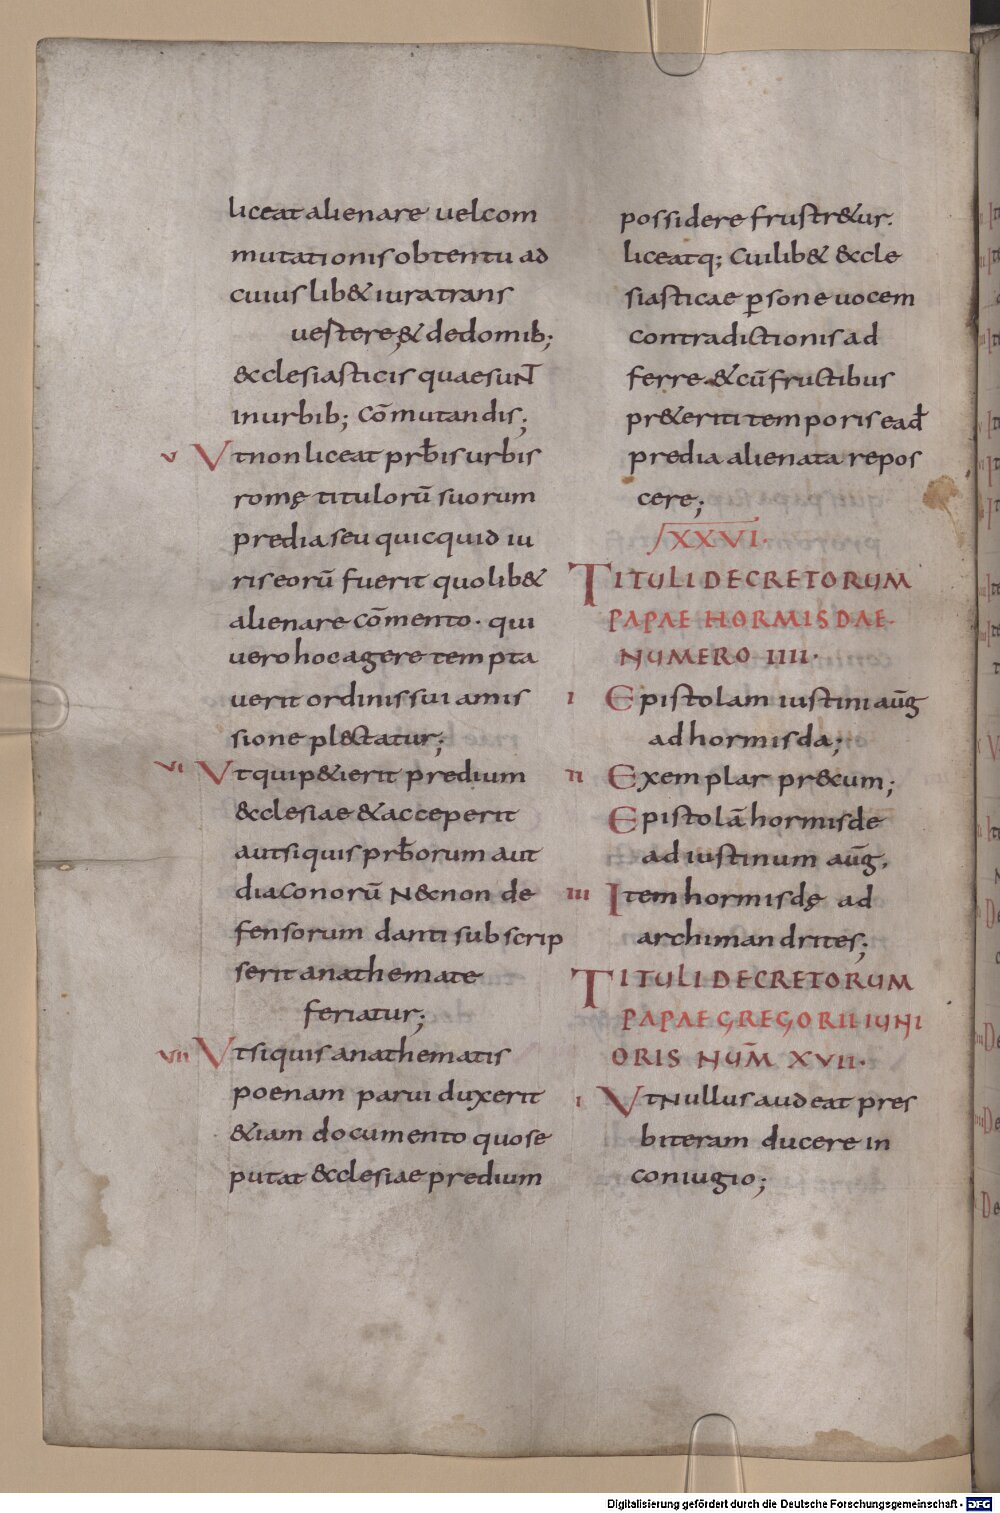 liceat alienare uel com
mutationis obtentu ad
cuius lib& iura trans
uestere; & de domib;
&cclesiasticis quae suNT̄
in urbib; cōmutandis;
v Vt non liceat prb̄is urbis
romę titulorū suorum
predia seu quicquid iu
ris eorū fuerit quolib&
alienare cōmento· qui
uero hoc agere tempta
uerit ordinis sui amis
sione pl&ctatur;
vi Vt qui p&ierit predium
&cclesiae & acceperit
aut si quis prb̄orum aut
diaconorū N&cnon de
fensorum danti subscrip
serit anathemate
feriatur;
vii Vt si quis anathematis
poenam parui duxerit
&iam documento quo se
putat &cclesiae predium
possidere frustr&ur.
liceatq; cuilib& &ccle
siasticae ꝑsone uocem
contradictionis ad
ferre· & cū fructibus
pr&eriti temporis ead̄
predia alienata repos
cere;
XXXVI·
TITULI DECRETORUM
PAPAE HORMISDAE·
NUMERO IIII·
i Epistolam iustini aūg
ad hormisda;
ii Exemplar pr&cum;
Epistolā hormisde
ad iustinum aūg,
iii Item hormisdę ad
archimandrites;
TITULI DECRETORUM
PAPAE GREGORII IUNI
ORIS NUM̄ XVII·
i Vt Nullus audeat pres
biteram ducere in
coniugio;
Digitalisierung gefördert durch die Deutsche Forschungsgemeinschaft - DFG